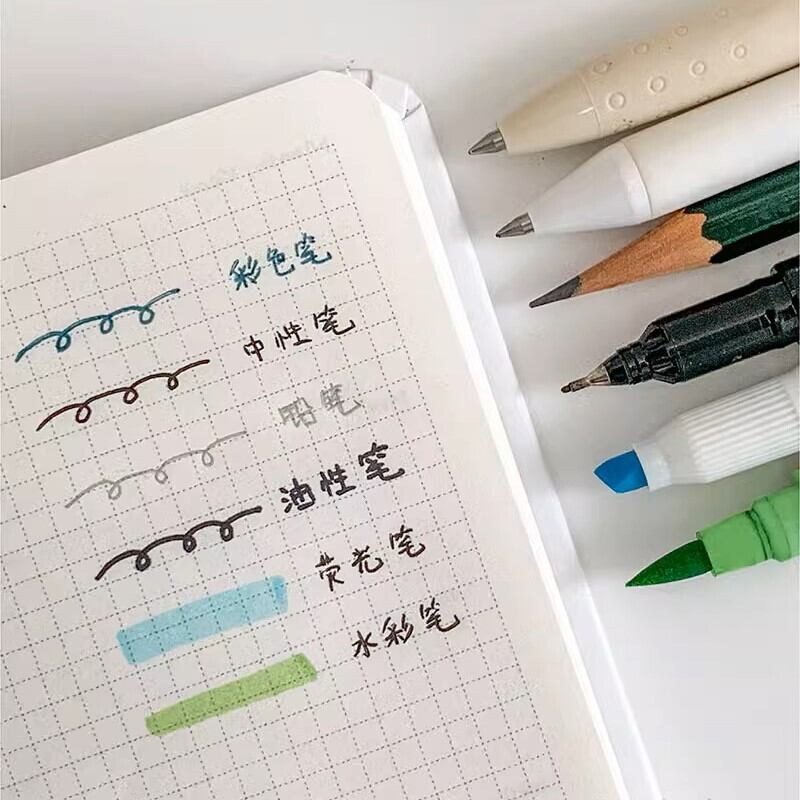 彩色笔
中性笔
铅笔
油性笔
荧光笔
水彩笔